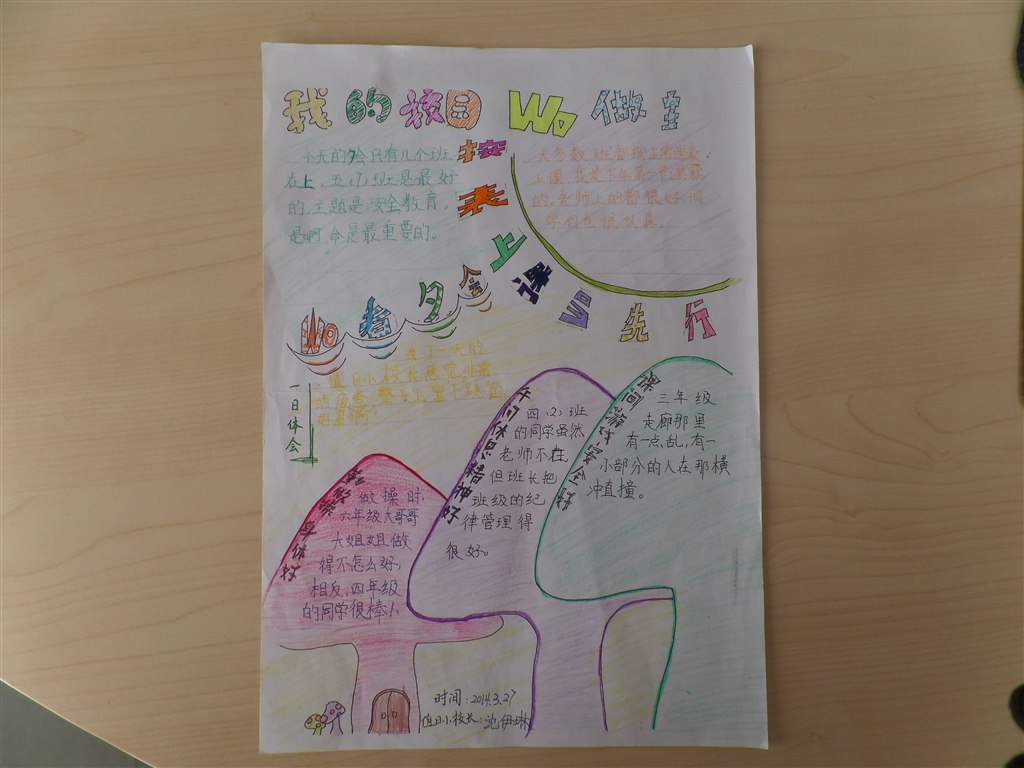 我的校园Wo做主
今天的夕会只有几个班
在上，五(1)班是最好
的，主题是安全教育。
是啊，命是最重要的。
按表上课Wo先行
大多数班都按正常课表
上课，我是下午第一节课察
的，老师上的都很好，同
学们也很认真。
Wo看夕会
一日体会
当了一天的
值日小校长感觉非常
的
午间休息精神好
四（2）班
的同学虽然
老师不在，
但班长把
班级的纪
律管理得
很好。
课间游戏安全
三年级
走廊那里
有一点乱，有一
小部分的人在那横
冲直撞。
身体好
做操时，
六年级大哥哥
大姐姐做
得不怎么好，
相反，四年级
的同学很棒！
时间：2014.3.27
值日小校长：沈伊琳